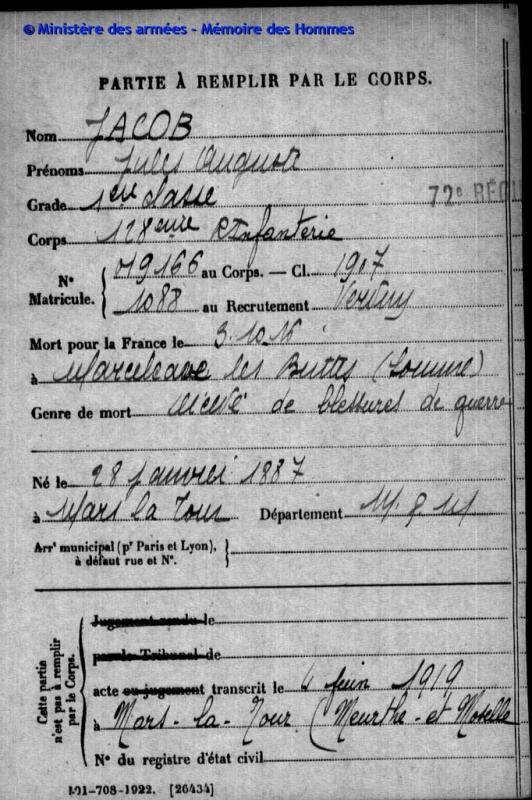 © Ministère des armées - Mémoire des Hommes
PARTIE À REMPLIR PAR LE CORPS.
Nom JACOB
Prénoms Jules August
Grade 1ere classe
72e RÉGI
Corps 128eme d'Infanterie
N° Matricule. 019166 au Corps. — Cl. 1907
1088 au Recrutement Verdun
Mort pour la France le 3.10.16
à Marcelcave les Buttes (Somme)
Genre de mort décédé de blessures de guerre
Né le 28 janvier 1887
à Mars la Tour Département M. & M
Arrt municipal (pr Paris et Lyon),
à défaut rue et N°.
Cette partie n'est pas à remplir par le Corps.
Jugement rendu le
par le Tribunal de
acte ou jugement transcrit le 4 juin 1919
à Mars-la-Tour (Meurthe-et-Moselle
N° du registre d'état civil
101-708-1922. [26434]